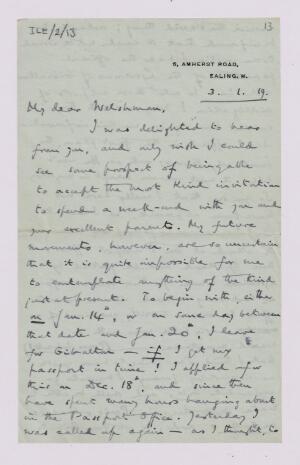 ILE/2/13
13
5, AMHERST ROAD,
EALING, W.
3. 1. 19.
My dear Welshman,
I was delighted to hear
from you, and only wish I could
see some prospect of being able
to accept the most kind invitation
to spend a week-end with you and
your excellent parents. My future
movements, however, are so uncertain
that it is quite impossible for me
to contemplate anything of the kind
just at present. To begin with, either
on Jan. 14th, or on some day between
that date and Jan. 20th, I leave
for Gibraltar — if I get my
passport in time! I applied for
this on Dec. 18th, and since then
have spent many hours hanging about
in the Passport Office. Yesterday I
was called up again — as I thought, to